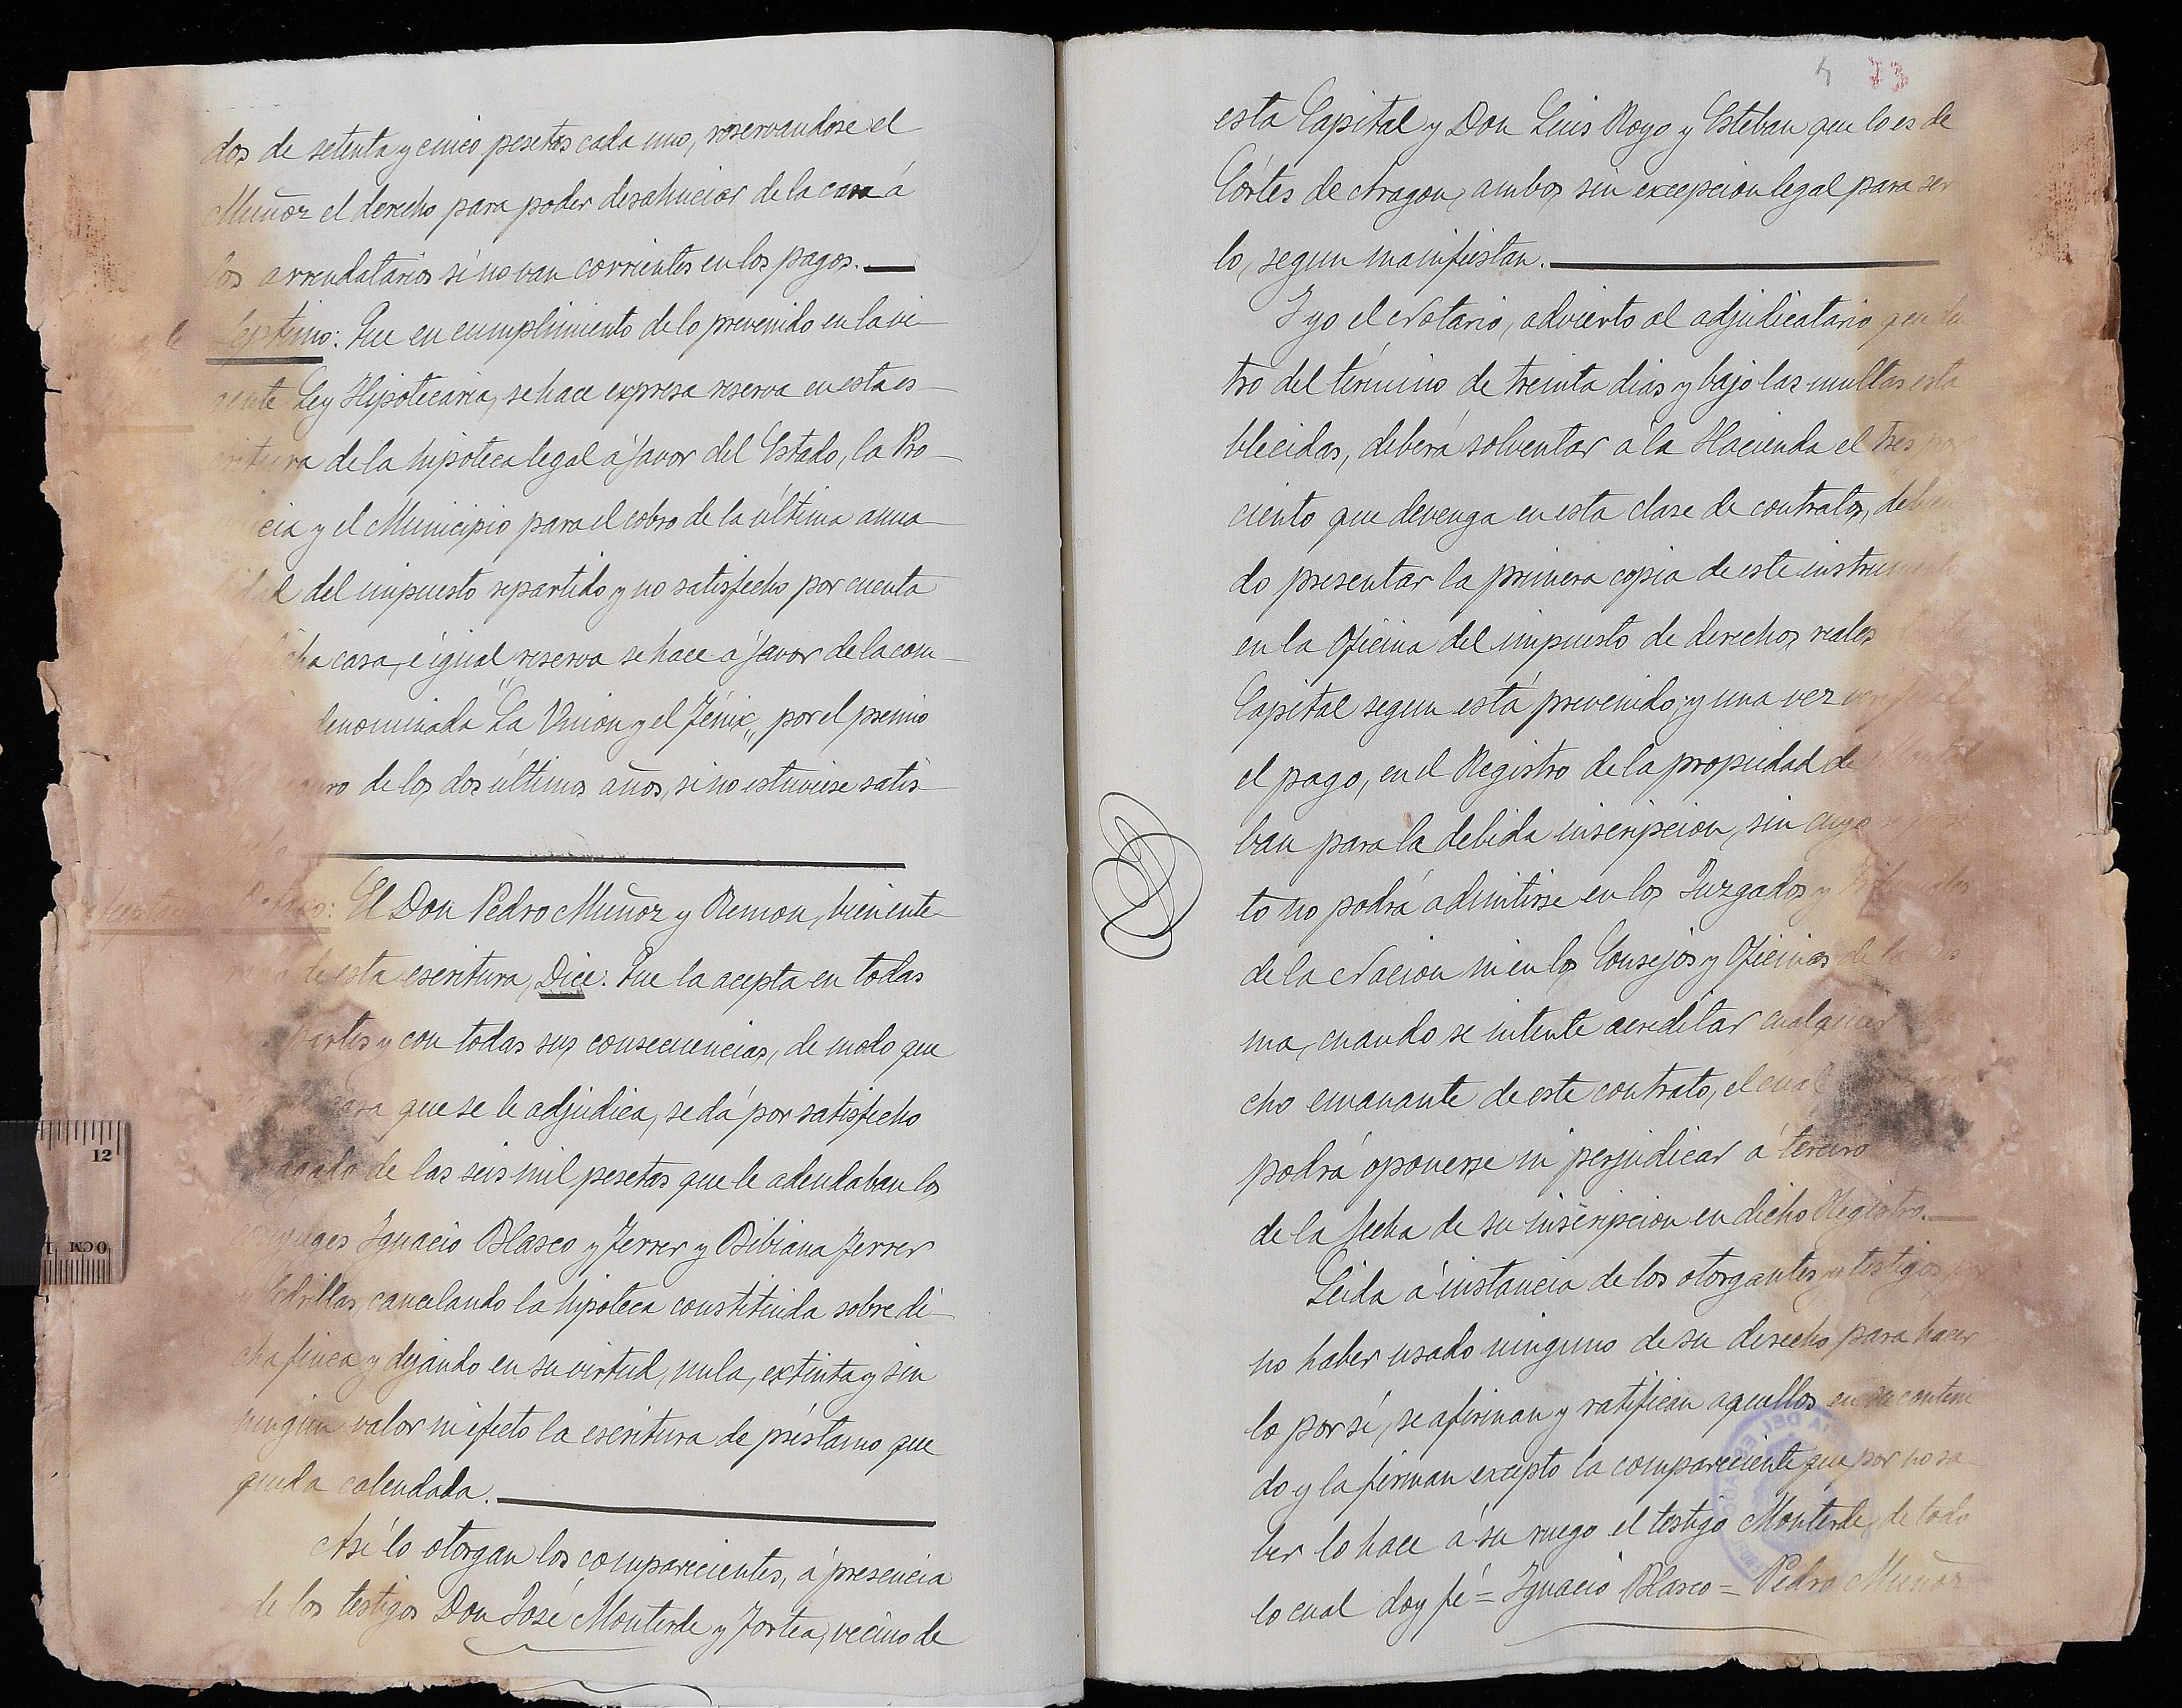 dos de setenta y cinco pesetas cada uno, reservandose el
Muñoz el derecho para poder desahuciar de la casa á
los arrendatarios si no van corrientes en los pagos.
Septimo: Que en cumplimiento de lo prevenido en la vi-
gente Ley Hipotecaria, se hace expresa reserva en esta es-
critura de la hipoteca legal á favor del Estado, la Pro-
cia y el Municipio para el cobro de la última anua-
lidad del impuesto repartido y no satisfecho por cuenta
cha casa, é igual reserva se hace á favor de la com-
denominada "La Union y el Fénix„ por el premio
guro de los dos últimos años, si no estuviese satis-
Octavo: El Don Pedro Muñoz y Remon, bien ente-
de esta escritura, Dice: Que la acepta en todas
partes y con todas sus consecuencias, de modo que
casa que se le adjudica, se dá por satisfecho
pagado de las seis mil pesetas que le adeudaban los
conyuges Ignacio Blasco y Ferrer y Bibiana Ferrer
cancelando la hipoteca constituida sobre di-
cha finca y dejando en su virtud, nula, extinta y sin
ningun valor ni efecto la escritura de préstamo que
queda calendada.
Asi lo otorgan los comparecientes, á presencia
de los testigos Don José Monterde y Fortea, vecino de
73
esta Capital y Don Luis Royo y Esteban que lo es de
Córtes de Aragon, ambos sin excepcion legal para ser
lo, segun manifiestan.
Y yo el Notario, advierto al adjudicatario que den
tro del término de treinta dias y bajo las multas esta
blecidas, deberá solventar á la Hacienda el tres por
ciento que devenga en esta clase de contratos, debien
do presentar la primera copia de este instrumento
en la Oficina del impuesto de derechos reales
Capital segun está prevenido; y una vez verificado
el pago, en el Registro de la propiedad de
ban para la debida inscripcion, sin cuyo requisi
to no podrá admitirse en los Juzgados y Tribunales
de la Nacion ni en los Consejos y Oficinas de la mis
ma, cuando se intente acreditar cualquier
cho emanante de este contrato, el cual
podrá oponerse ni perjudicar á tercero
de la fecha de su inscripcion en dicho Registro.
Leida á instancia de los otorgantes y testigos por
no haber usado ninguno de su derecho para hacer
lo por sí, se afirman y ratifican aquellos en su conteni
do y la firman excepto la compareciente que por no sa
ber lo hace á su ruego el testigo Monterde, de todo
lo cual doy fé = Ignacio Blasco = Pedro Muñoz
12
0CM 1